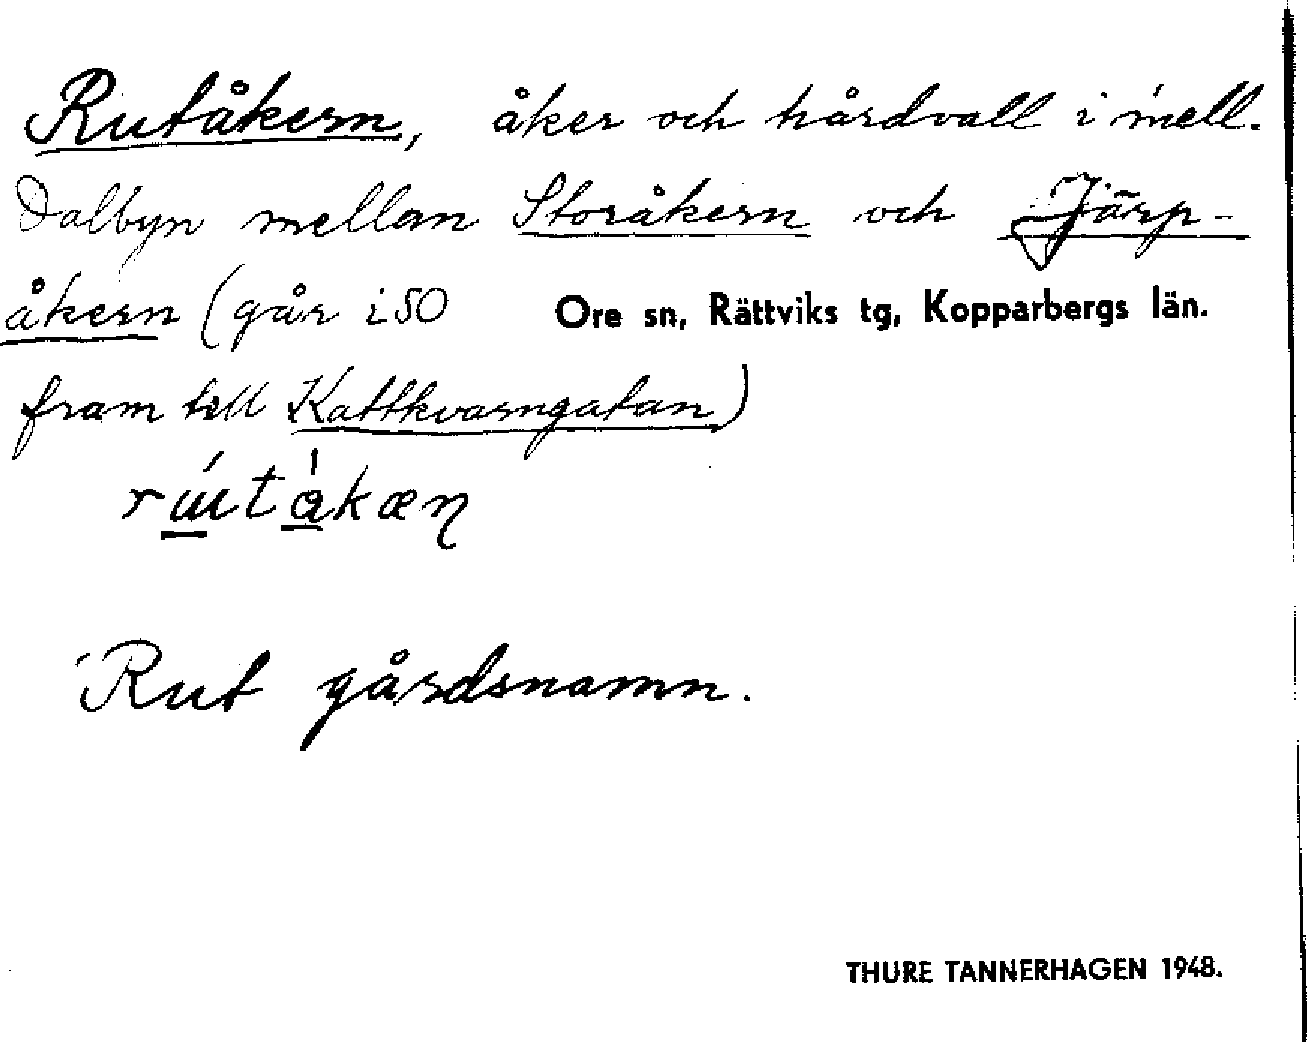 Rutåkern, åker och hårdvall i mell.
Dalbyn mellan Storåkern och Järp-
åkern (går i SO
Ore sn, Rättviks tg, Kopparbergs län.
fram till Kattkvarngatan)
Rut gårdsnamn.
THURE TANNERHAGEN 1948.